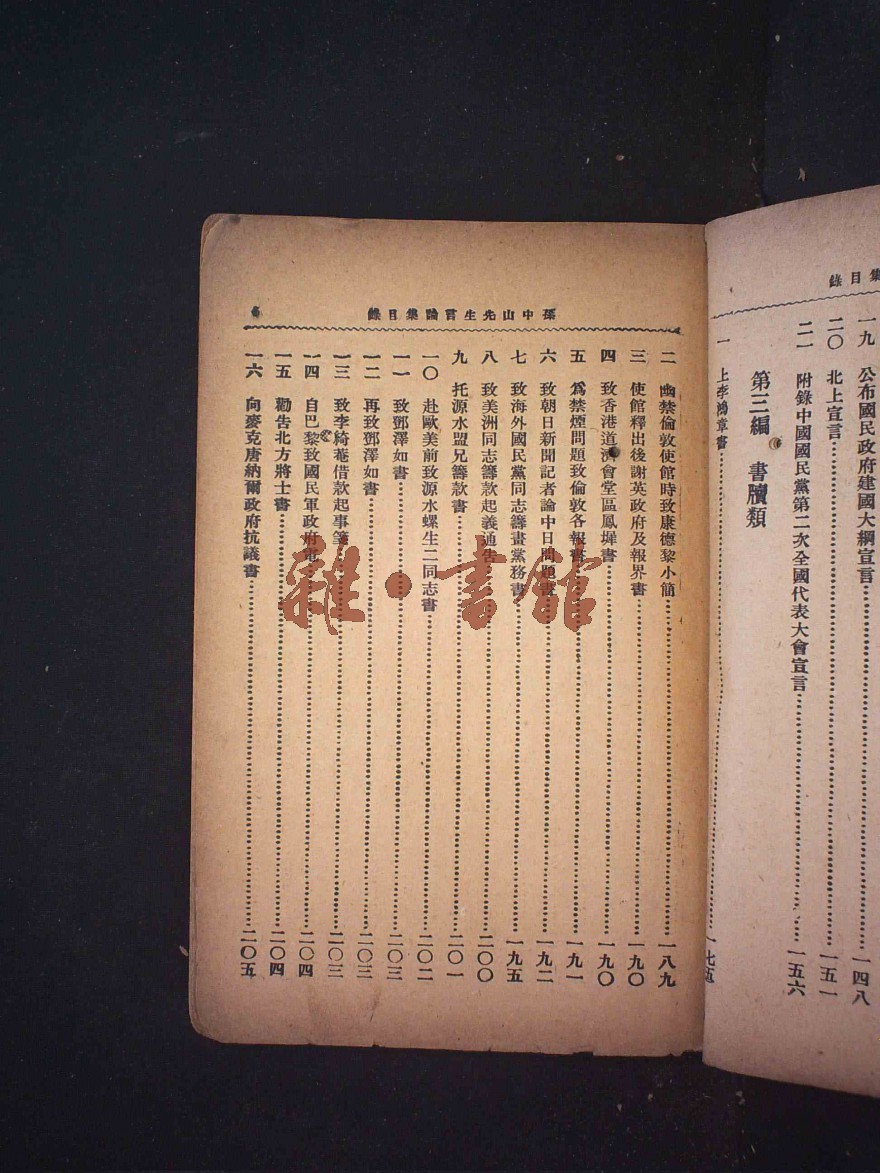 集目錄
一九 公布國民政府建國大綱宣言 一四八
二〇 北上宣言 一五一
二一 附錄中國國民黨第二次全國代表大會宣言 一五六
第三編 書牘類
一 上李鴻章書 一七五
孫中山先生言論集目錄
二 幽禁倫敦使館時致康德黎小簡 一八九
三 使館釋出後謝英政府及報界書 一九〇
四 致香港道濟會堂區鳳墀書 一九〇
五 爲禁煙問題致倫敦各報書 一九一
六 致朝日新聞記者論中日問題書 一九二
七 致海外國民黨同志籌畫黨務書 一九五
八 致美洲同志籌款起義通告 二〇〇
九 托源水盟兄籌款書 二〇一
一〇 赴歐美前致源水螺生二同志書 二〇二
一一 致鄧澤如書 二〇三
一二 再致鄧澤如書 二〇三
一三 致李綺菴借款起事箋 二〇三
一四 自巴黎致國民軍政府電 二〇四
一五 勸告北方將士書 二〇四
一六 向麥克唐納爾政府抗議書 二〇五
雜·書館